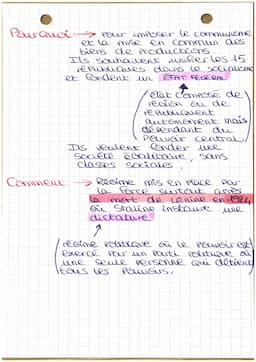 Pourquoi → Pour imposer le communisme
et la mise en commun des
biens de productions.
Ils souhaitent unifier les 15
républiques dans le socialisme
et fondent un ÉTAT FEDERAL
(état composé de
région ou de
républiquent
autonoment mais
dépendant du
Pouvoir central.)
Ils veulent fonder une
société égalitaire, sans
classes sociales.
Comment → Régime mis en place par
la force surtout après
la mort de Lénine en 1924
où Staline instaure une
dictature
(régime politique où le pouvoir est
exercé par un parti politique où
une seule personne qui détient
tous les pouvoirs.)